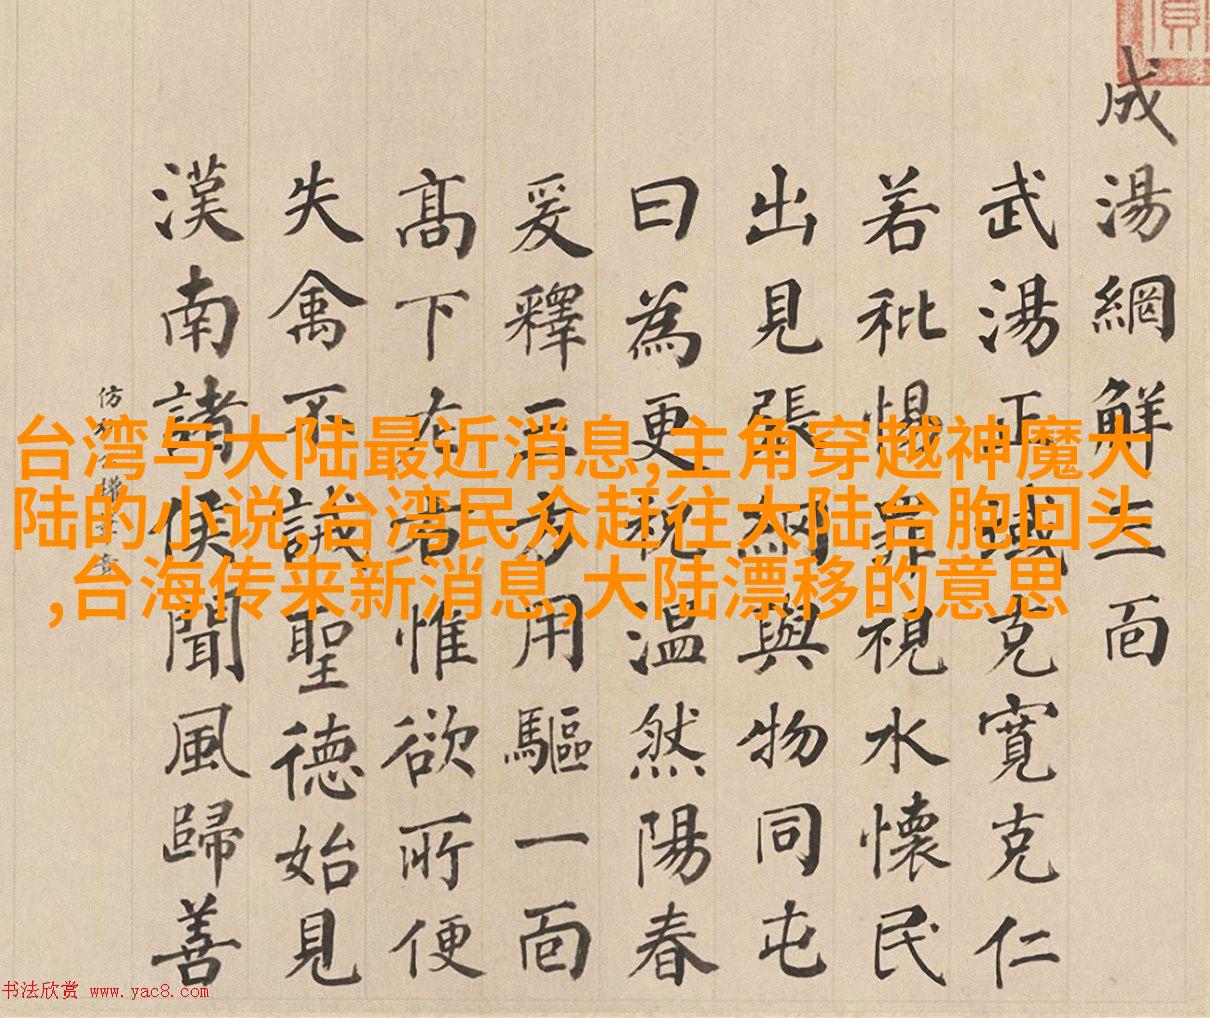 成湯網觧三面
武湯正域克寬克仁
若秕惧罪視水懷民
出見張網與物同屯
曰為更祝温然陽春
爰釋三方用驅一面
髙下左右惟欲所便
失禽不誡聖德始見
漢南諸侯聞風歸善
仿
台湾与大陆最近消息,主角穿越神魔大
陆的小说,台湾民众赶往大陆台胞回头
,台海传来新消息,大陆漂移的意思
书法欣赏 www.yac8.com